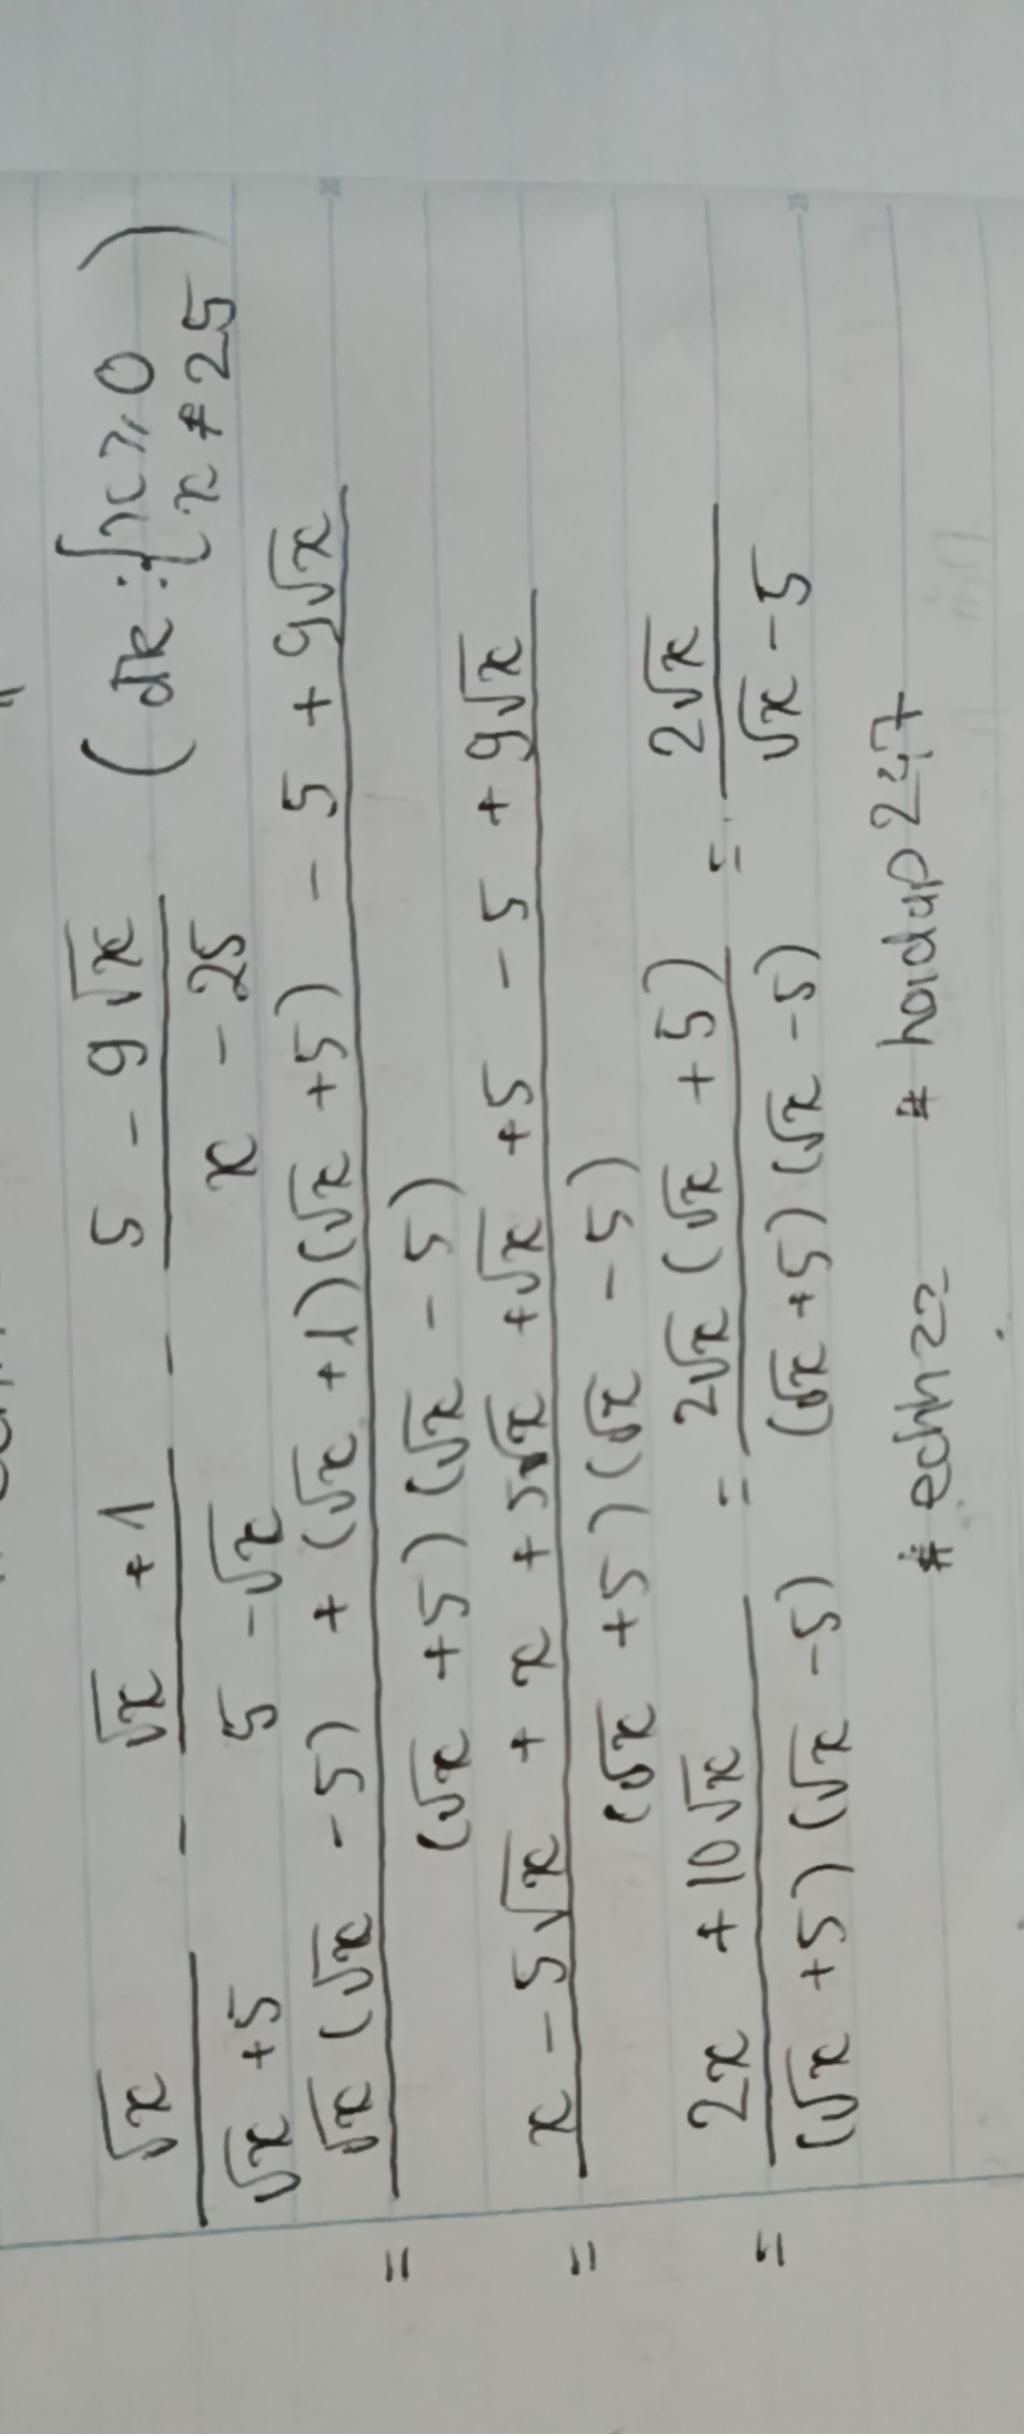 √x / (√x + 5) - (√x + 1) / (5 - √x) - (5 - 9√x) / (x - 25) (đk: { x ≥ 0
x ≠ 25 )
= (√x (√x - 5) + (√x + 1)(√x + 5) - 5 + 9√x) / ((√x + 5)(√x - 5))
= (x - 5√x + x + 5√x + √x + 5 - 5 + 9√x) / ((√x + 5)(√x - 5))
= (2x + 10√x) / ((√x + 5)(√x - 5)) = (2√x (√x + 5)) / ((√x + 5)(√x - 5)) = 2√x / (√x - 5)
# hoidap247